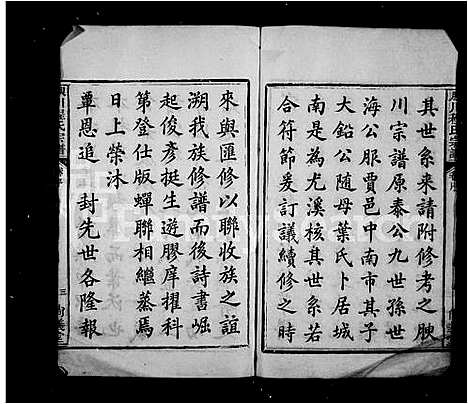 其世系來請附修考之腴
川宗譜原泰公九世孫世
海公服賈邑中南市其子
大船公随母葉氏卜居城
南是為尤溪核其世系若
合符節爰訂議續修之時
來與匯修以聯收族之誼
溯我族修譜而後詩書崛
起俊彥挺生遊膠庠擢科
第登仕版蟬聯相繼蒸焉
日上榮沐
覃恩追 封先世各隆報
三